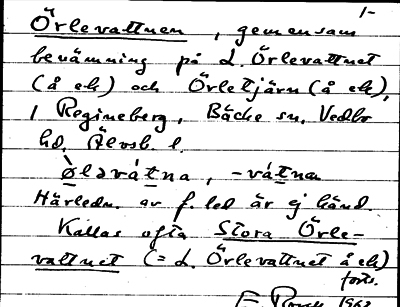 1-
Örlevattnen, gemensam
benämning på L. Örlevattnet
(å ek) och Örletjärn (å ek),
1 Regineberg, Bäcke sn. Vedbo
hd. Älvsb. l.
ø̀ləvátna, -vátna
Härledn. av f. led är ej känd.
Kallas ofta Stora Örle-
vattnet (= L. Örlevattnet å ek)
forts.
1963